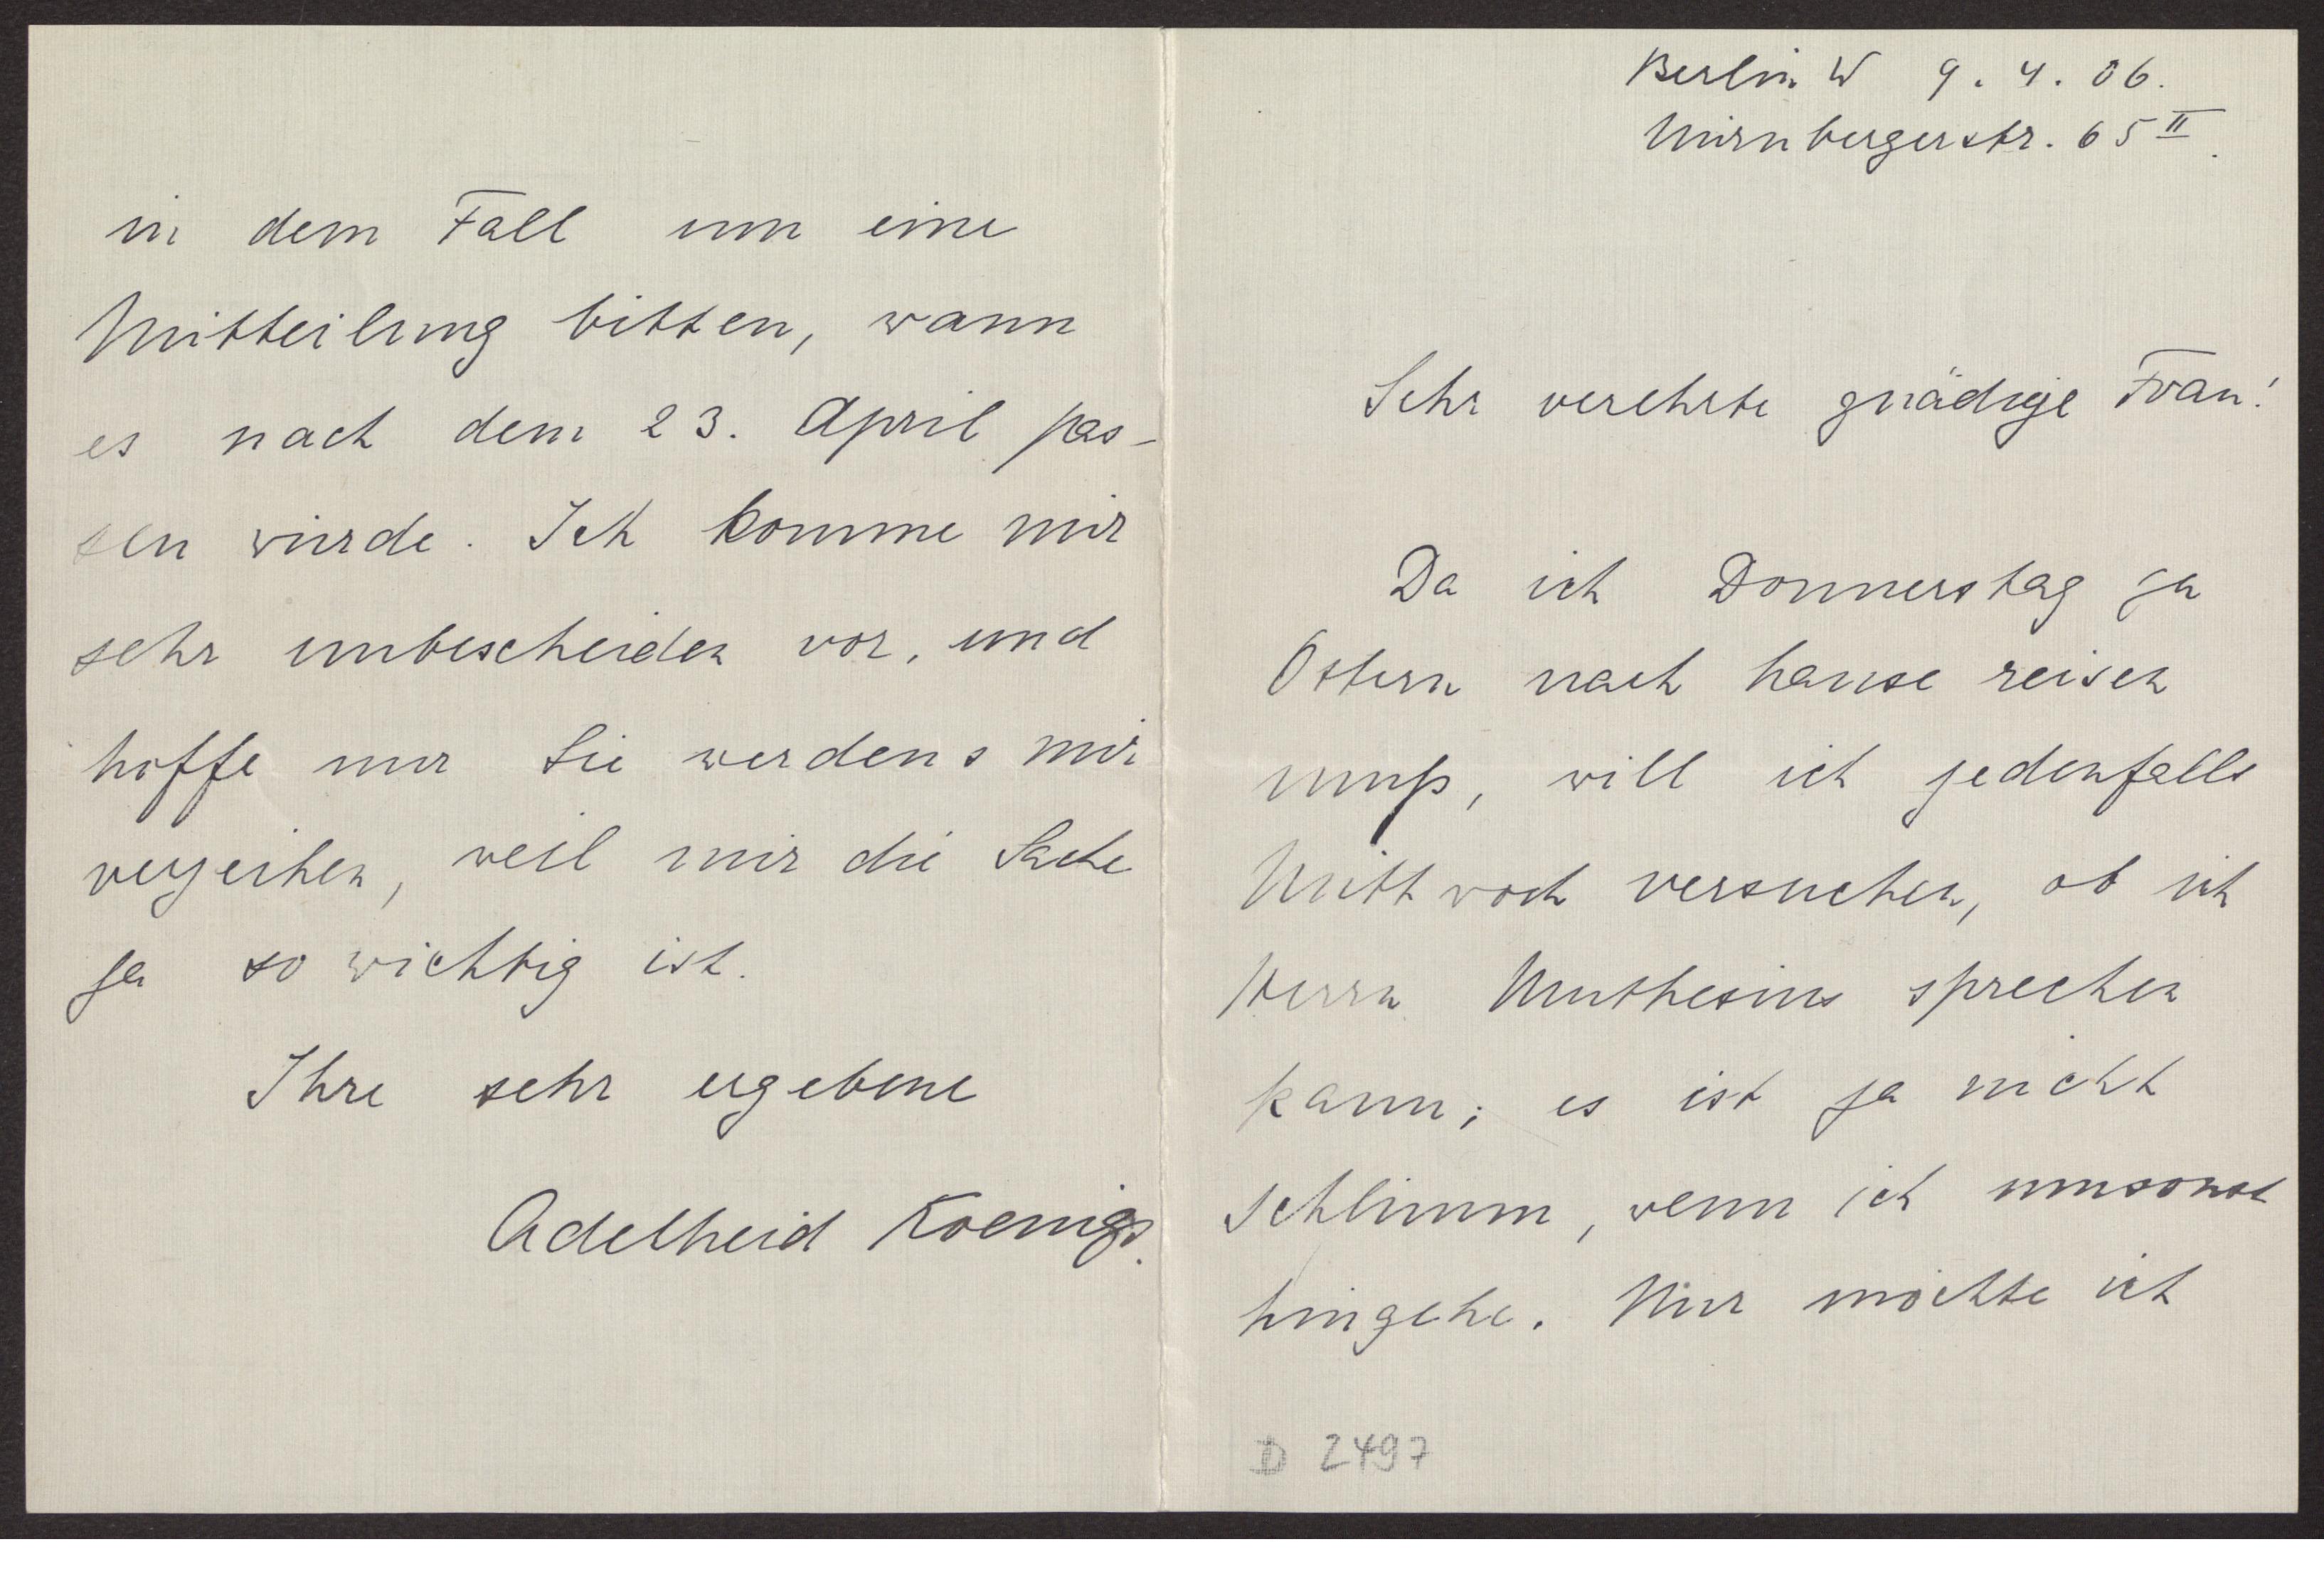 Berlin W 9.4.06.
Nürnbergerstr. 65 II.
Sehr verehrte gnädige Frau!
Da ich Donnerstag ja
Ostern nach hause reisen
muß, will ich jedenfalls
Mittwoch versuchen, ob ich
Herrn Muthesius sprechen
kann; es ist ja nicht
schlimm, wenn ich umsonst
hingehe. Nur möchte ich
D 2497
in dem Fall um eine
Mitteilung bitten, wann
es nach dem 23. April pas-
sen würde. Ich komme mir
sehr unbescheiden vor, und
hoffe nur Sie werdens mir
verzeihen, weil mir die Sache
ja so wichtig ist.
Ihre sehr ergebene
Adelheid Koenigs.